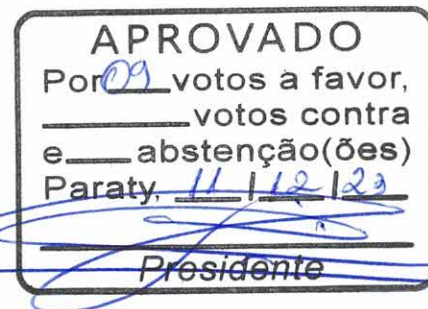 APROVADO
Por 09 votos a favor,
votos contra
e abstenção(ões)
Paraty, 11 / 12 / 23
Presidente